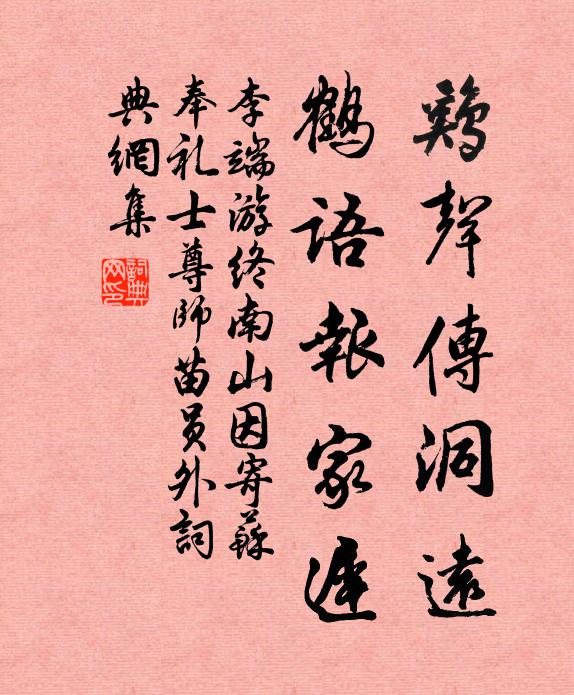 鷄聲傳洞遠
鶴語報家遲
李端游终南山因寄蘇
奉礼士尊師苗员外詞
典網集
詞典网印